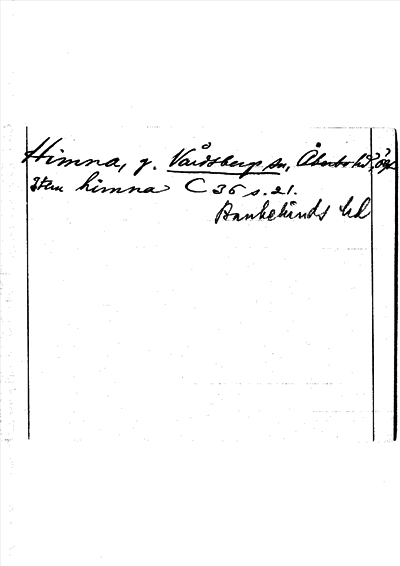 Himna, g. Vårdsbergs sn, Åkerbo hd?, Ög.
Item himna C 36 s. 21.
Bankekinds hd